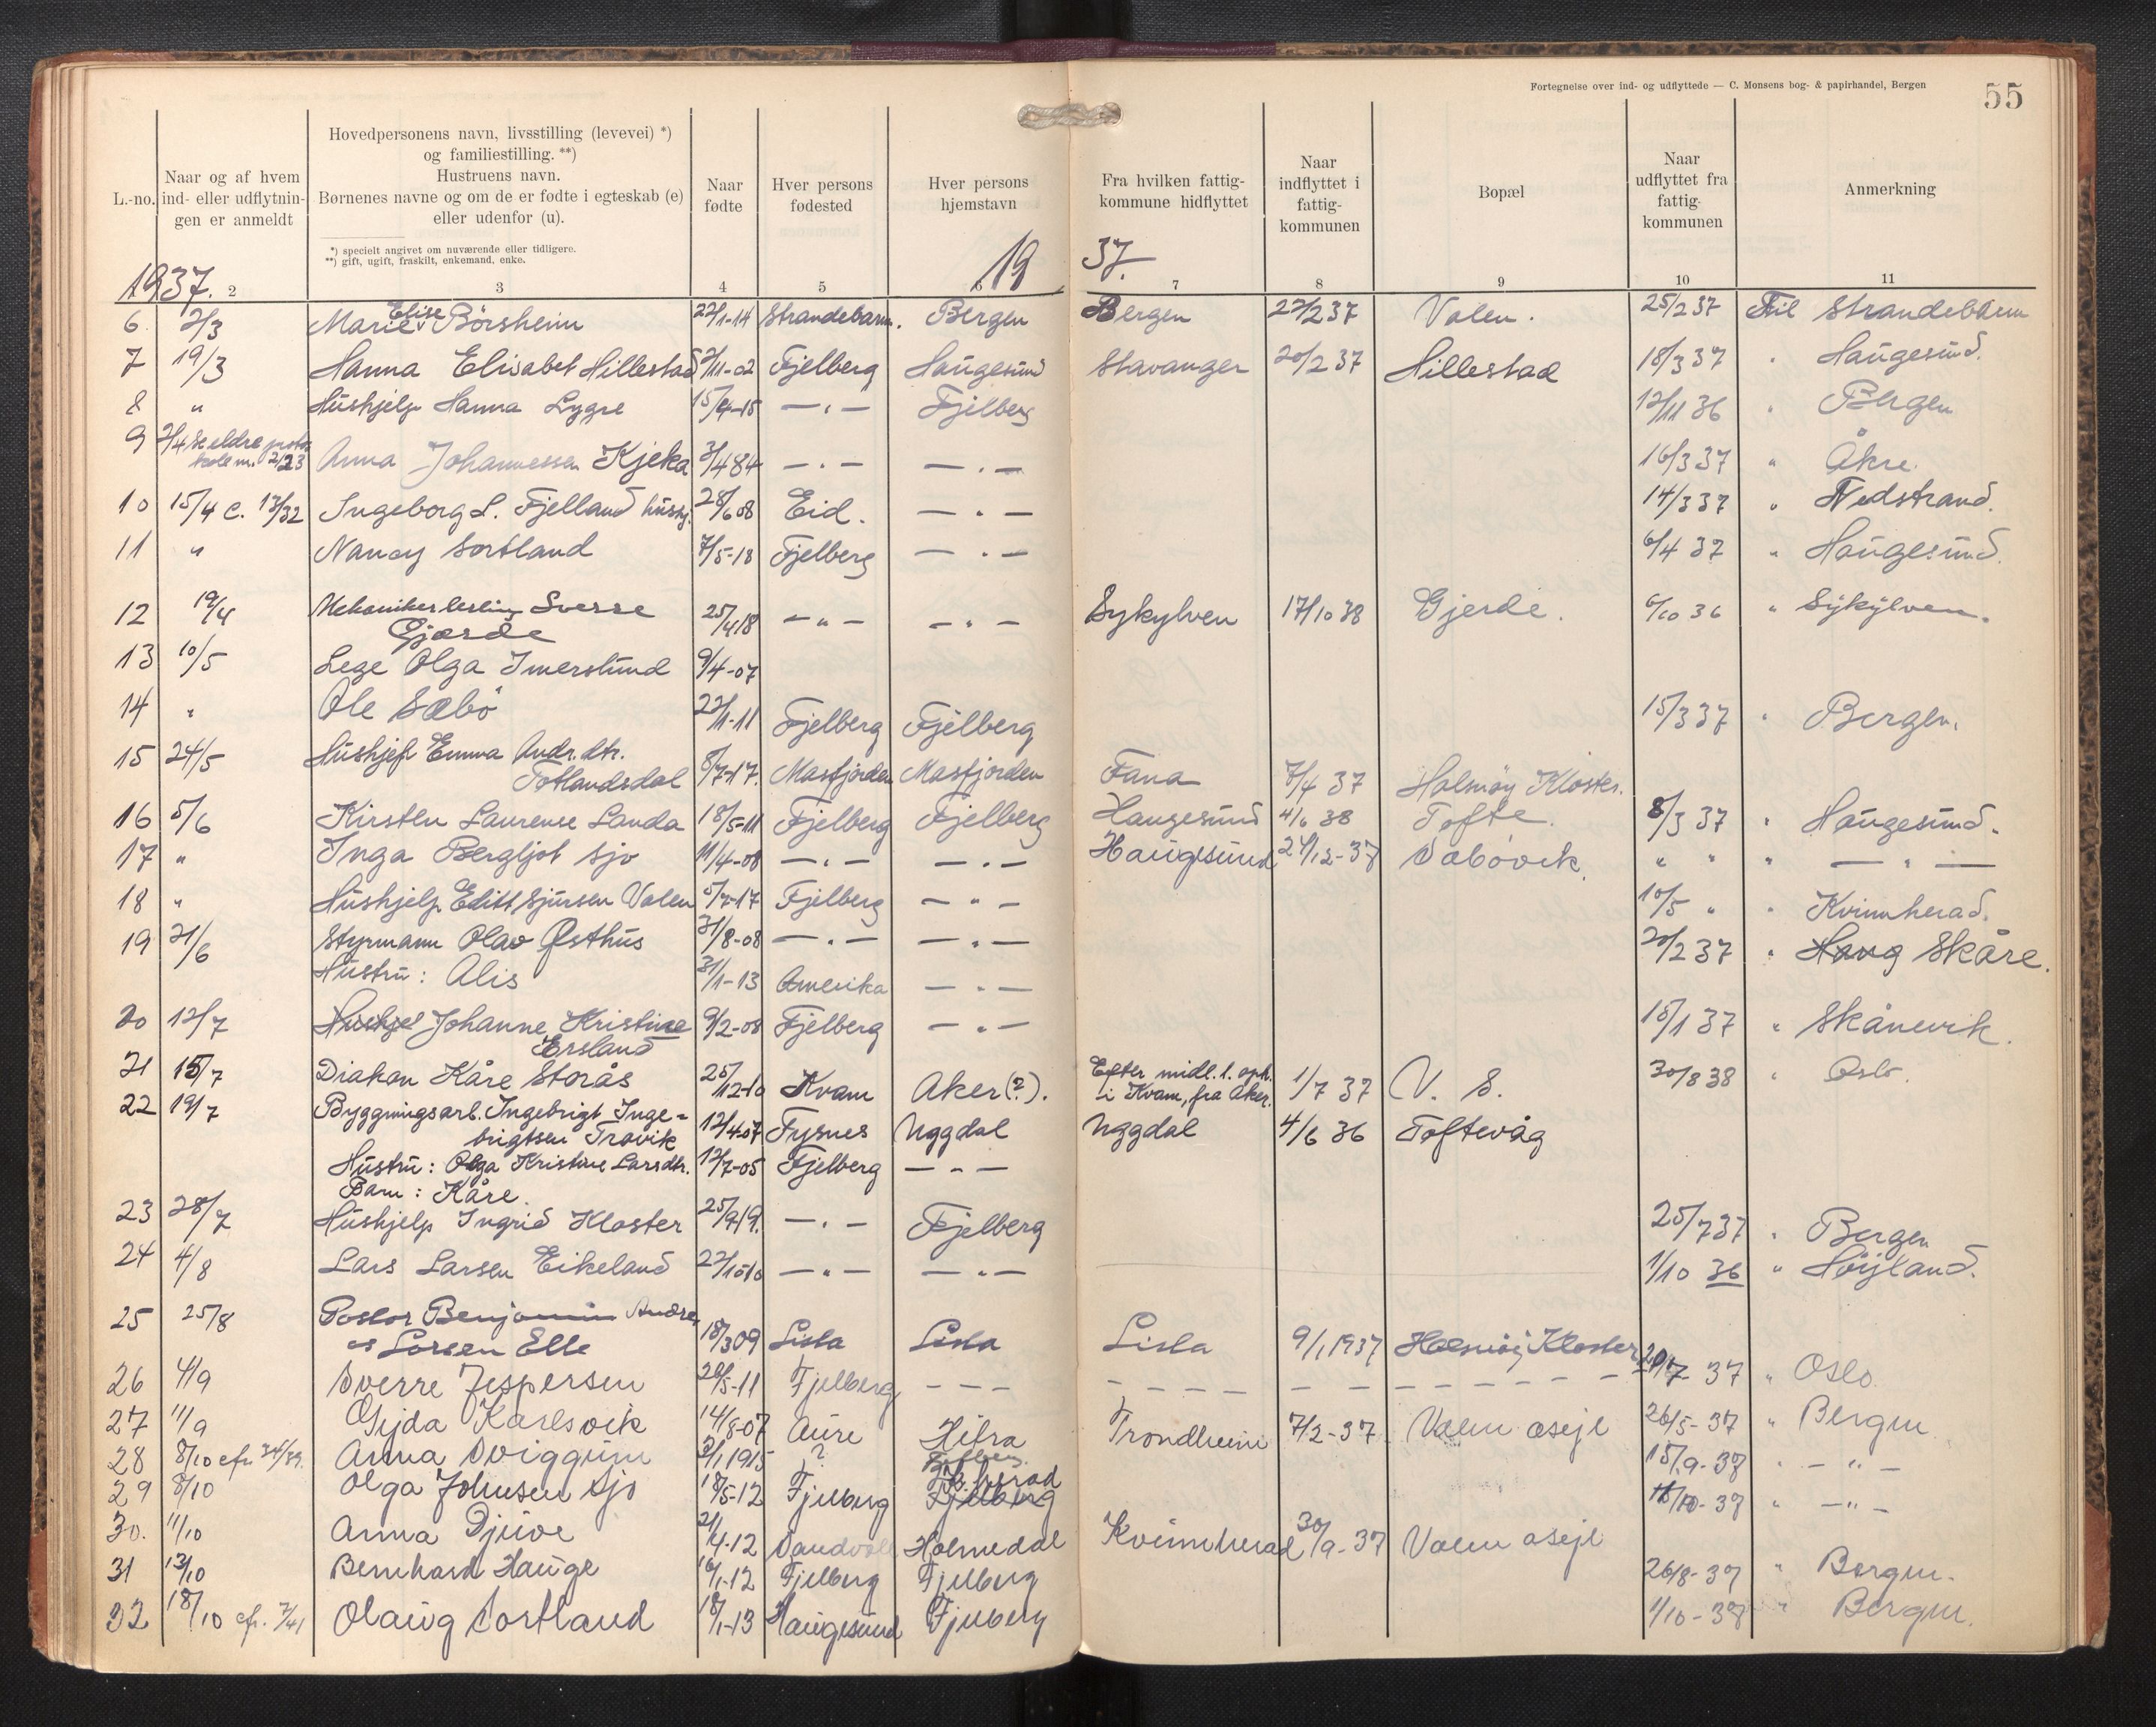 Fortegnelse over ind- og udflyttede — C. Monsens bog- & papirhandel, Bergen
55
L.-no.
Naar og af hvem ind- eller udflytnin-gen er anmeldt
Hovedpersonens navn, livsstilling (levevei) *)
og familiestilling. **)
Hustruens navn.
Børnenes navne og om de er fødte i egteskab (e)
eller udenfor (u).
*) specielt angivet om nuværende eller tidligere.
**) gift, ugift, fraskilt, enkemand, enke.
Naar fødte
Hver persons fødested
Hver persons hjemstavn
Fra hvilken fattig-kommune hidflyttet
Naar indflyttet i fattig-kommunen
Bopæl
Naar udflyttet fra fattig-kommunen
Anmerkning
1937. 2 3 4 5 6 19 37. 7 8 9 10 11
6 2/3 Marie Elise Börsheim 22/1-14 Strandebarm. Bergen Bergen 22/2 37 Valen. 25/2 37 Til Strandebarm
7 19/3 Hanna Elisabet Hillestad 2/11-02 Fjelberg Haugesund Stavanger 20/2 37 Hillestad 18/3 37 " Haugesund.
8 " Hushjelp Hanna Lygre 15/4-15 — " — Fjelberg 12/11 36 " Bergen
9 2/4 Se eldre proto kole nr. 2/23 Anna Johannessen Kjeka 3/4 84 — " — — " — 16/3 37 " Åkre.
10 15/4 c. 13/32 Ingeborg L. Fjelland hushj. 28/6 08 Eid. — " — 14/3 37 " Nedstrand.
11 " Nancy Sortland 7/5-18 Fjelberg — " — 6/4 37 " Haugesund.
12 19/4 Mekanikerlerling Sverre Gjærde 25/4 18 — " — — " — Sykylven 17/10 38 Gjerde. 6/10 36 " Sykylven.
13 10/5 Lege Olga Imerslund 9/4-07
14 " Ole Sæbö 22/1-11 Fjelberg Fjelberg 15/3 37 " Bergen.
15 24/5 Hushjelp Emma Andr. dtr. Totlandsdal 8/7-17. Masfjorden Masfjorden Fana 7/4 37 Halsnøy Kloster.
16 5/6 Kirsten Laurense Landa 18/5-11 Fjelberg Fjelberg Haugesund 4/6 38 Tofte. 8/3 37 " Haugesund.
17 " Inga Bergljot Sjo 11/4-08 — " — — " — Haugesund 21/12-37 Sæbövik. " " " — " —
18 " Hushjelp Editt Sjursen Valen 5/7-17 Fjelberg — " — 10/5 " " Kvinnherad.
19 21/6 Styrmann Olav Østhus 31/8-08 — " — — " — 20/2 37 " Haug Skåre.
Hustru: Alis 31/1-13 Amerika — " —
20 12/7 Hushjel Johanne Kristine Ersland 9/2-08 Fjelberg — " — 15/1 37 " Skånevik.
21 15/7 Diakon Kåre Storås 25/12-10 Kvam Aker (?). Efter midl. l. oph. i Kvam, fra Aker. 1/7 37 V. S. 30/8 38 " Oslo.
22 19/7 Byggningsarb. Ingebrigt Inge=brigtsen Travik 12/4-07 Tysnes Uggdal Uggdal 4/6 36 Toftevåg
Hustru: Olga Kristine Larsdtr. 12/7-05 Fjelberg — " —
Barn: Kåre.
23 28/7 Hushjelp Ingrid Kloster 25/9 19. — " — Fjelberg 25/7 37 " Bergen
24 4/8 Lars Larsen Eikeland 22/10-10 — " — — " — 1/10 36 " Höyland.
25 25/8 Pastor Benjamin Andreas Larsen Elle 18/3 09 Lista Lista Lista 9/1 1937 Halsnøy Kloster
26 4/9 Sverre Jespersen 20/5-11 Fjelberg — — — 37 " Oslo
27 11/9 Gyda Karlsvik 14/8-07 Aure Hitra Trondheim 7/2-37 Valen asejl 26/5-37 " Bergen
28 8/10 cfr. 24/39. Anna Sviggum 2/1 1915 ? 15/9-37 " — " —
29 8/10 Olga Johnsen Sjo 18/5-12 Fjelberg Fjelberg " — " —
30. 11/10 Anna Djuve 2/4-12 Holmedal Kvinnherad 30/9-37 Valen asejl
31 13/10 Bernhard Hauge 16/1-12 Fjelberg Fjelberg 26/8-37 " Bergen.
32 18/10 cfr. 7/41 Olaug Sortland 18/1-13 Haugesund Fjelberg 1/10-37 " Bergen.